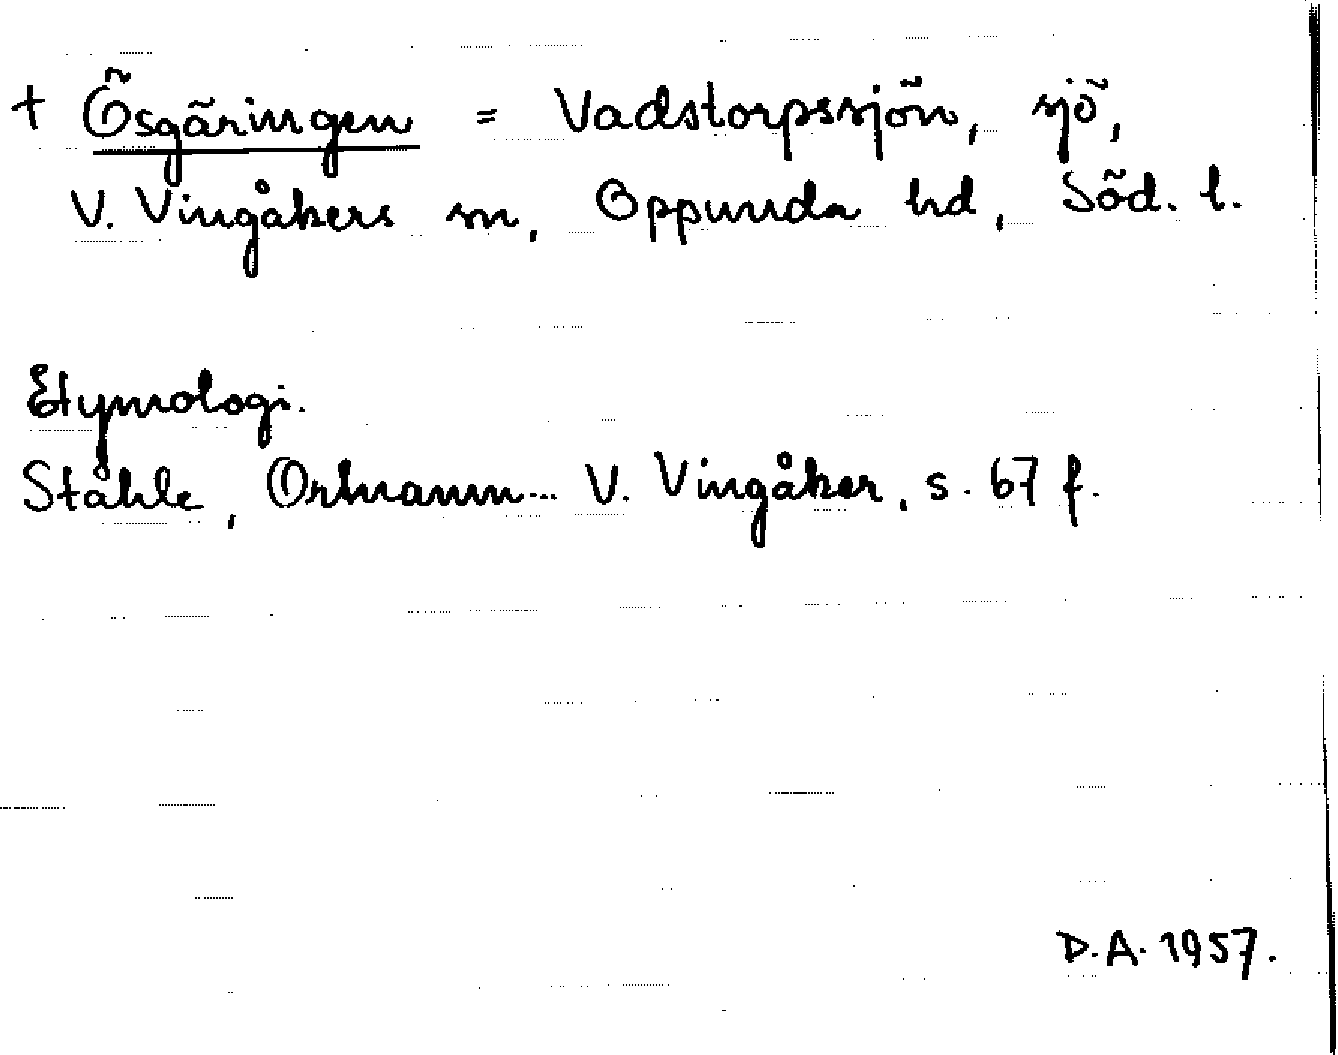 † Ösgäringen = Vadstorpssjön, sjö,
V. Vingåkers sn, Oppunda hd, Söd. l.
Etymologi.
Ståhle, Ortnamn... V. Vingåker, s. 67 f.
D.A. 1957.